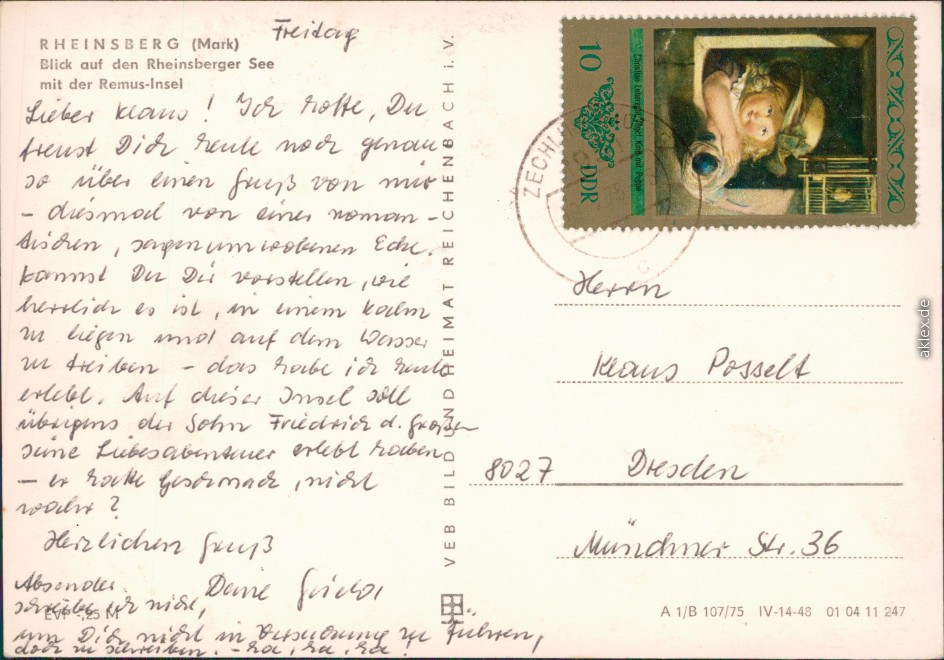 Freitag
RHEINSBERG (Mark)
Blick auf den Rheinsberger See
mit der Remus-Insel
Lieber Klaus! Ich hoffe, Du
freust Dich heute noch genau
so über einen Gruß von mir
- diesmal von einer roman-
tischen, sagenumwobenen Ecke.
Kannst Du Dir vorstellen, wie
herrlich es ist, in einem Kahn
zu liegen und auf dem Wasser
zu treiben - das habe ich heute
erlebt. Auf dieser Insel soll
übrigens der Sohn Friedrich d. Großen
seine Liebesabenteuer erlebt haben
- er hatte Geschmack, nicht
wahr?
Herzlichen Gruß
Deine
Absender
schreibe ich nicht,
um Dich nicht in Versuchung zu führen,
doch zu schreiben. - ha, ha, ha!
EVP -,25 M
VEB BILD UND HEIMAT REICHENBACH i. V.
10
DDR
ZECHLI
Herrn
Klaus Posselt
8027 Dresden
Münchner Str. 36
A 1/B 107/75 IV-14-48 01 04 11 247
aklex.de